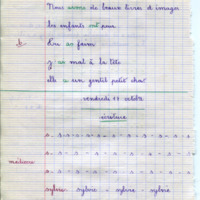 Nous avons de beaux livres d'images
les enfants ont peur
tu as faim
j'ai mal à la tête
elle a un gentil petit chat
vendredi 11 octobre
écriture
s. s - s - s - s - s - s - s - s
s. s - s - s - s - s - s - s
s. s - s - s - s - s - s - s
sylvie - sylvie - sylvie - sylvie